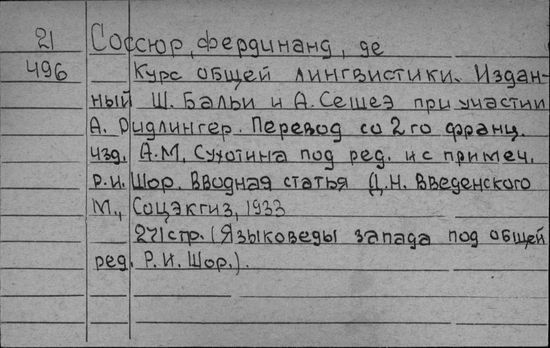 21 Соссюр, Фердинанд, де
496 Курс общей лингвистики. Издан-
ный Ш. Бальи и А. Сешеэ при участии
А. Ридлингер. Перевод со 2го франц.
изд. А.М. Сухотина под ред. и с примеч.
Р.И. Шор. Вводная статья Д.Н. Введенского
М., Соцэкгиз, 1933
271стр. (Языковеды запада под общей
ред. Р.И. Шор.).